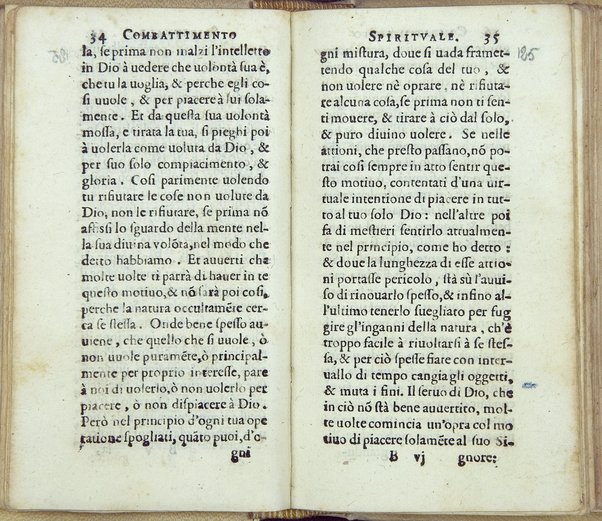 34 COMBATTIMENTO
la, se prima non inalzi l'intelletto
in Dio à uedere che uolontà sua è,
che tu la uoglia, & perche egli co-
si uuole, & per piacere à lui sola-
mente. Et da questa sua uolontà
mossa, e tirata la tua, si pieghi poi
à uolerla come uoluta da Dio, &
per suo solo compiacimento, &
gloria. Così parimente uolendo
tu rifiutare le cose non uolute da
Dio, non le rifiutare, se prima nō
affissi lo sguardo della mente nel-
la sua diuina volōtà, nel modo che
detto habbiamo. Et auuerti che
molte uolte ti parrà di hauer in te
questo motiuo, & nō sarà poi così,
perche la natura occultamēte cer-
ca se stessa. Onde bene spesso au-
uiene, che quello che si uuole, ò
non uuole puramēte, ò principal-
mente per proprio interesse, pare
à noi di uolerlo, ò non uolerlo per
piacere, ò non dispiacere à Dio.
Però nel principio d'ogni tua ope
ratione spogliati, quāto puoi, d'o-
gni
SPIRITVALE. 35
185
gni mistura, doue si uada framet-
tendo qualche cosa del tuo, &
non uolere nè oprare, nè rifiuta-
re alcuna cosa, se prima non ti sen-
ti mouere, & tirare à ciò dal solo,
& puro diuino uolere. Se nelle
attioni, che presto passano, nō po-
trai così sempre in atto sentir que-
sto motiuo, contentati d'una uir-
tuale intentione di piacere in tut-
to al tuo solo Dio: nell'altre poi
fa di mestieri sentirlo attualmen-
te nel principio, come ho detto:
& doue la lunghezza di esse attio-
ni portasse pericolo, stà sù l'auui-
so di rinouarlo spesso, & infino al-
l'ultimo tenerlo suegliato per fug
gire gl'inganni della natura, ch'è
troppo facile à riuoltarsi à se stes-
sa, & per ciò spesse fiate con inter-
uallo di tempo cangia gli oggetti,
& muta i fini. Il seruo di Dio, che
in ciò nō stà bene auuertito, mol-
te uolte comincia un'opra col mo
tiuo di piacere solamēte al suo Si-
B vj gnore: